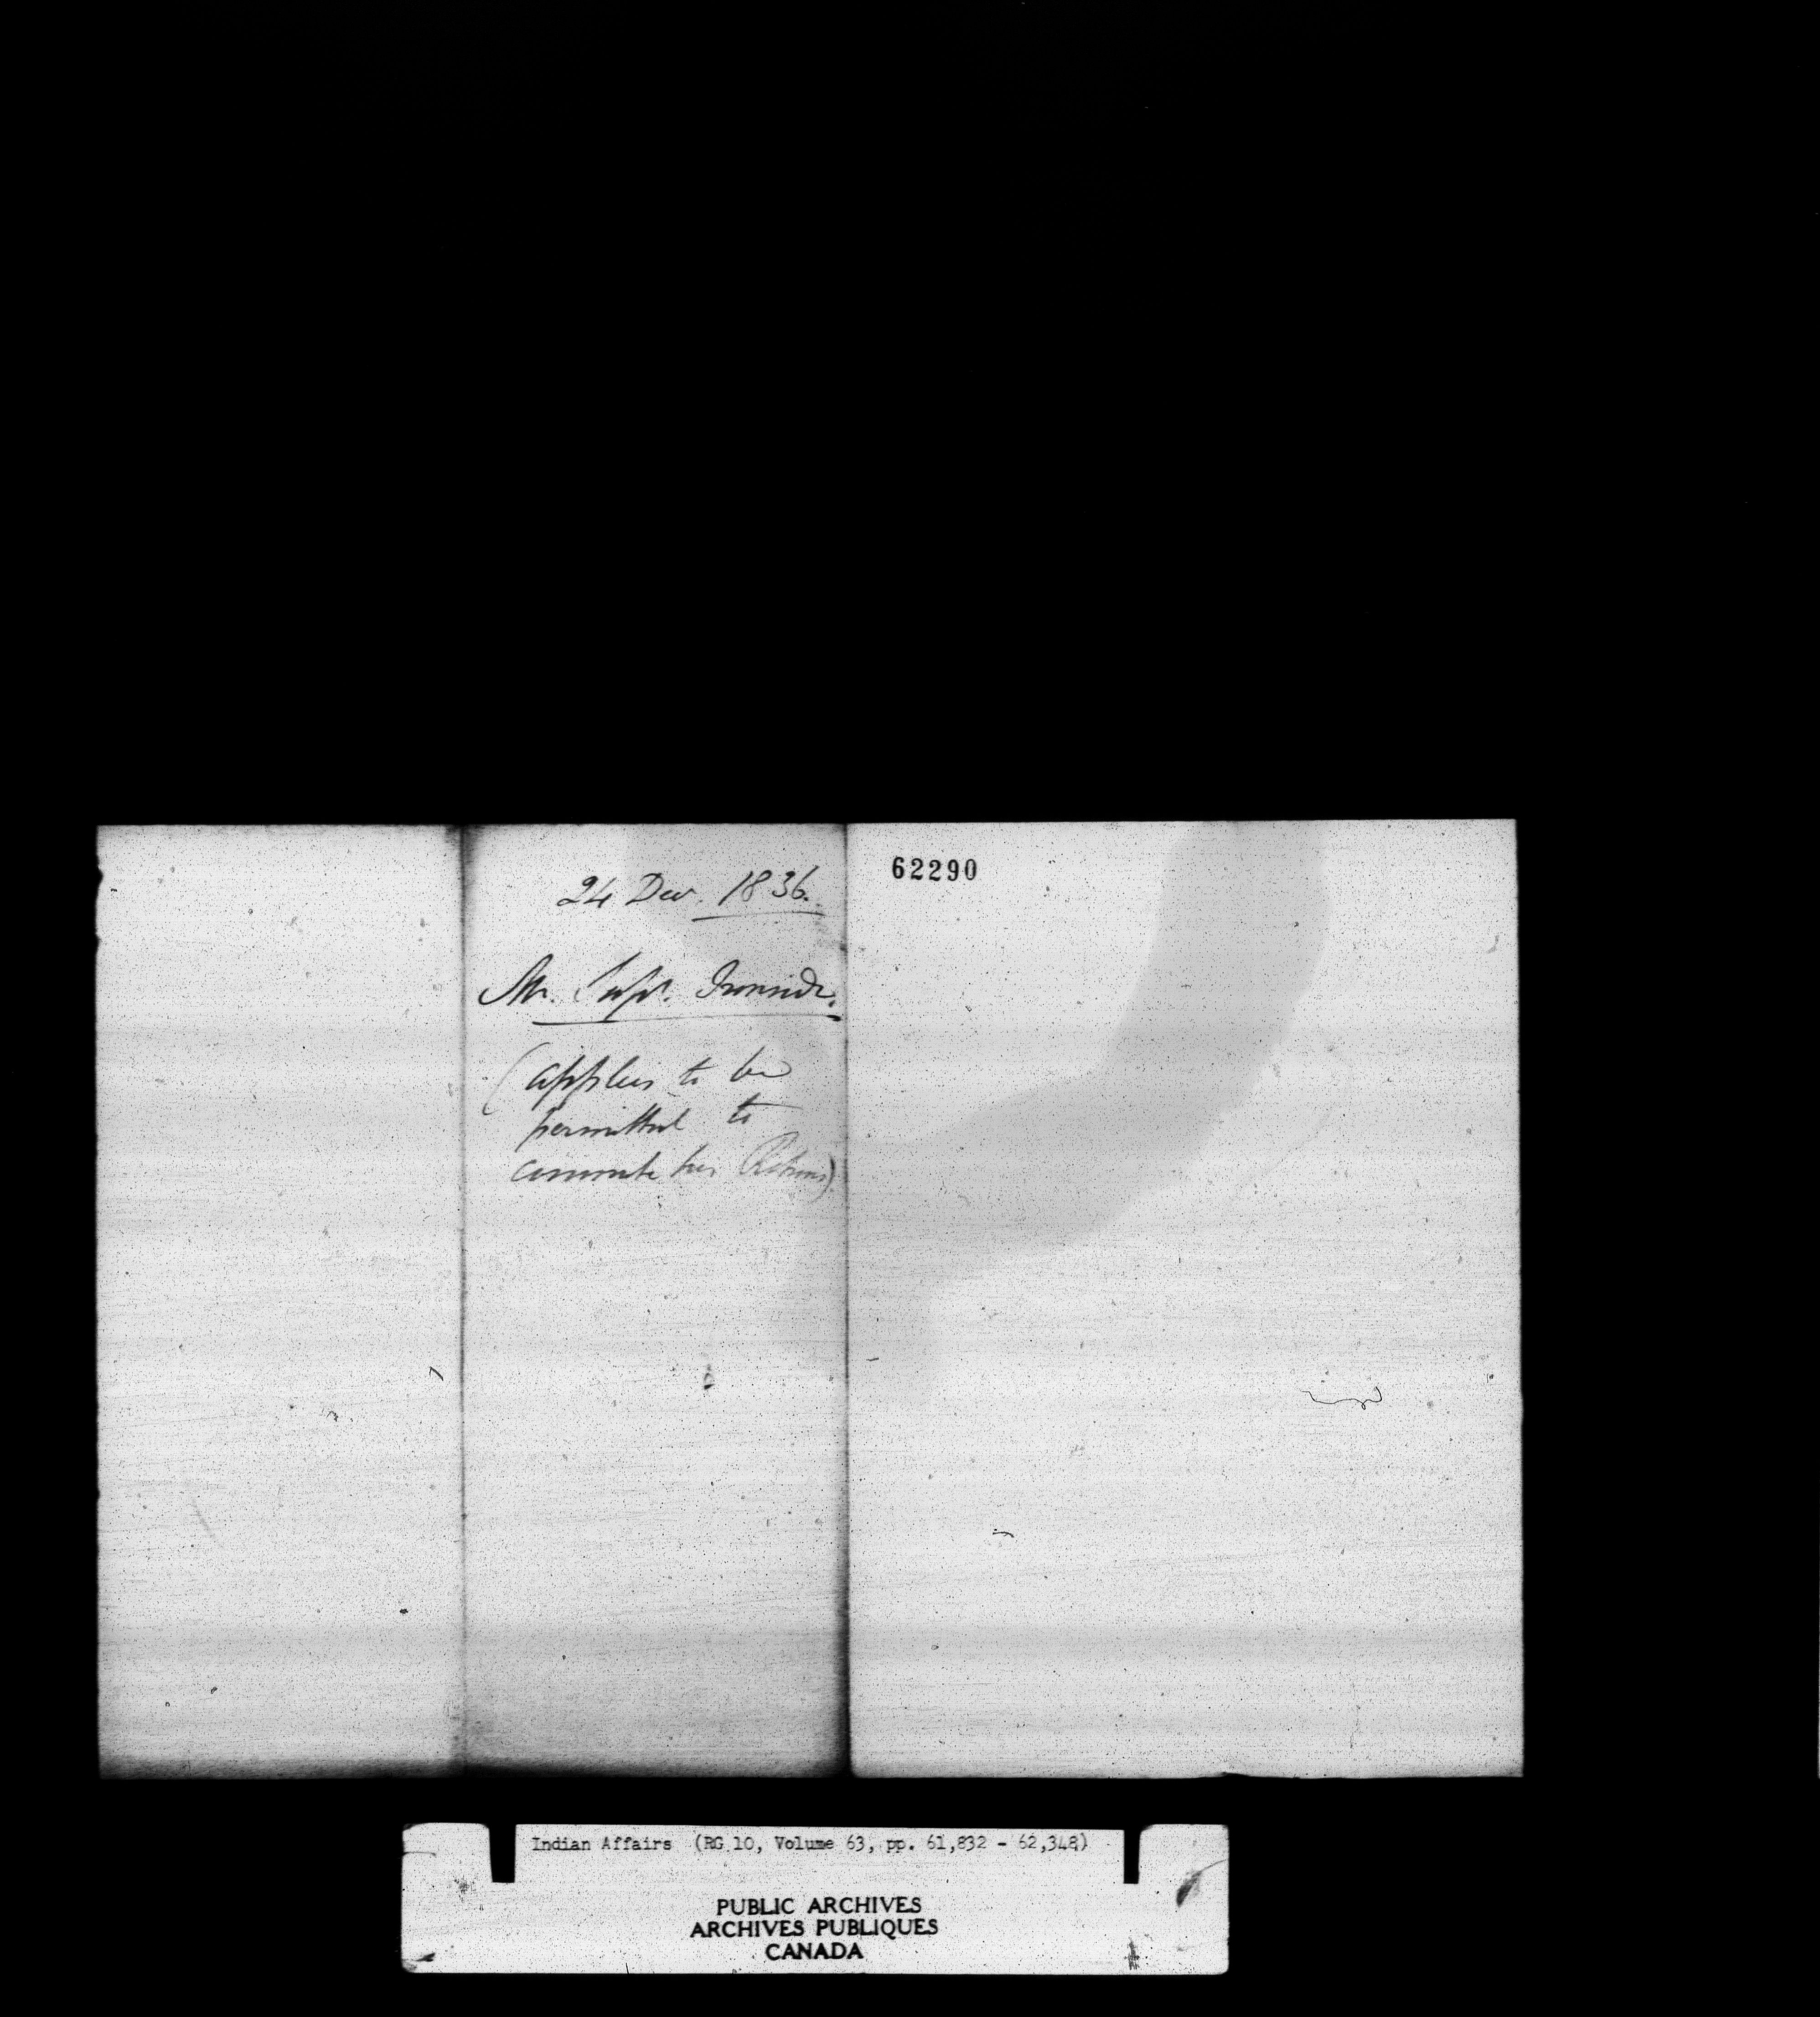 24 Dec. 1836.
Mr. Supt. Ironside.
(applies to be
permitted to
commute his Rations)
62290
Indian Affairs (RG 10, Volume 63, pp. 61,832 - 62,348)
PUBLIC ARCHIVES
ARCHIVES PUBLIQUES
CANADA